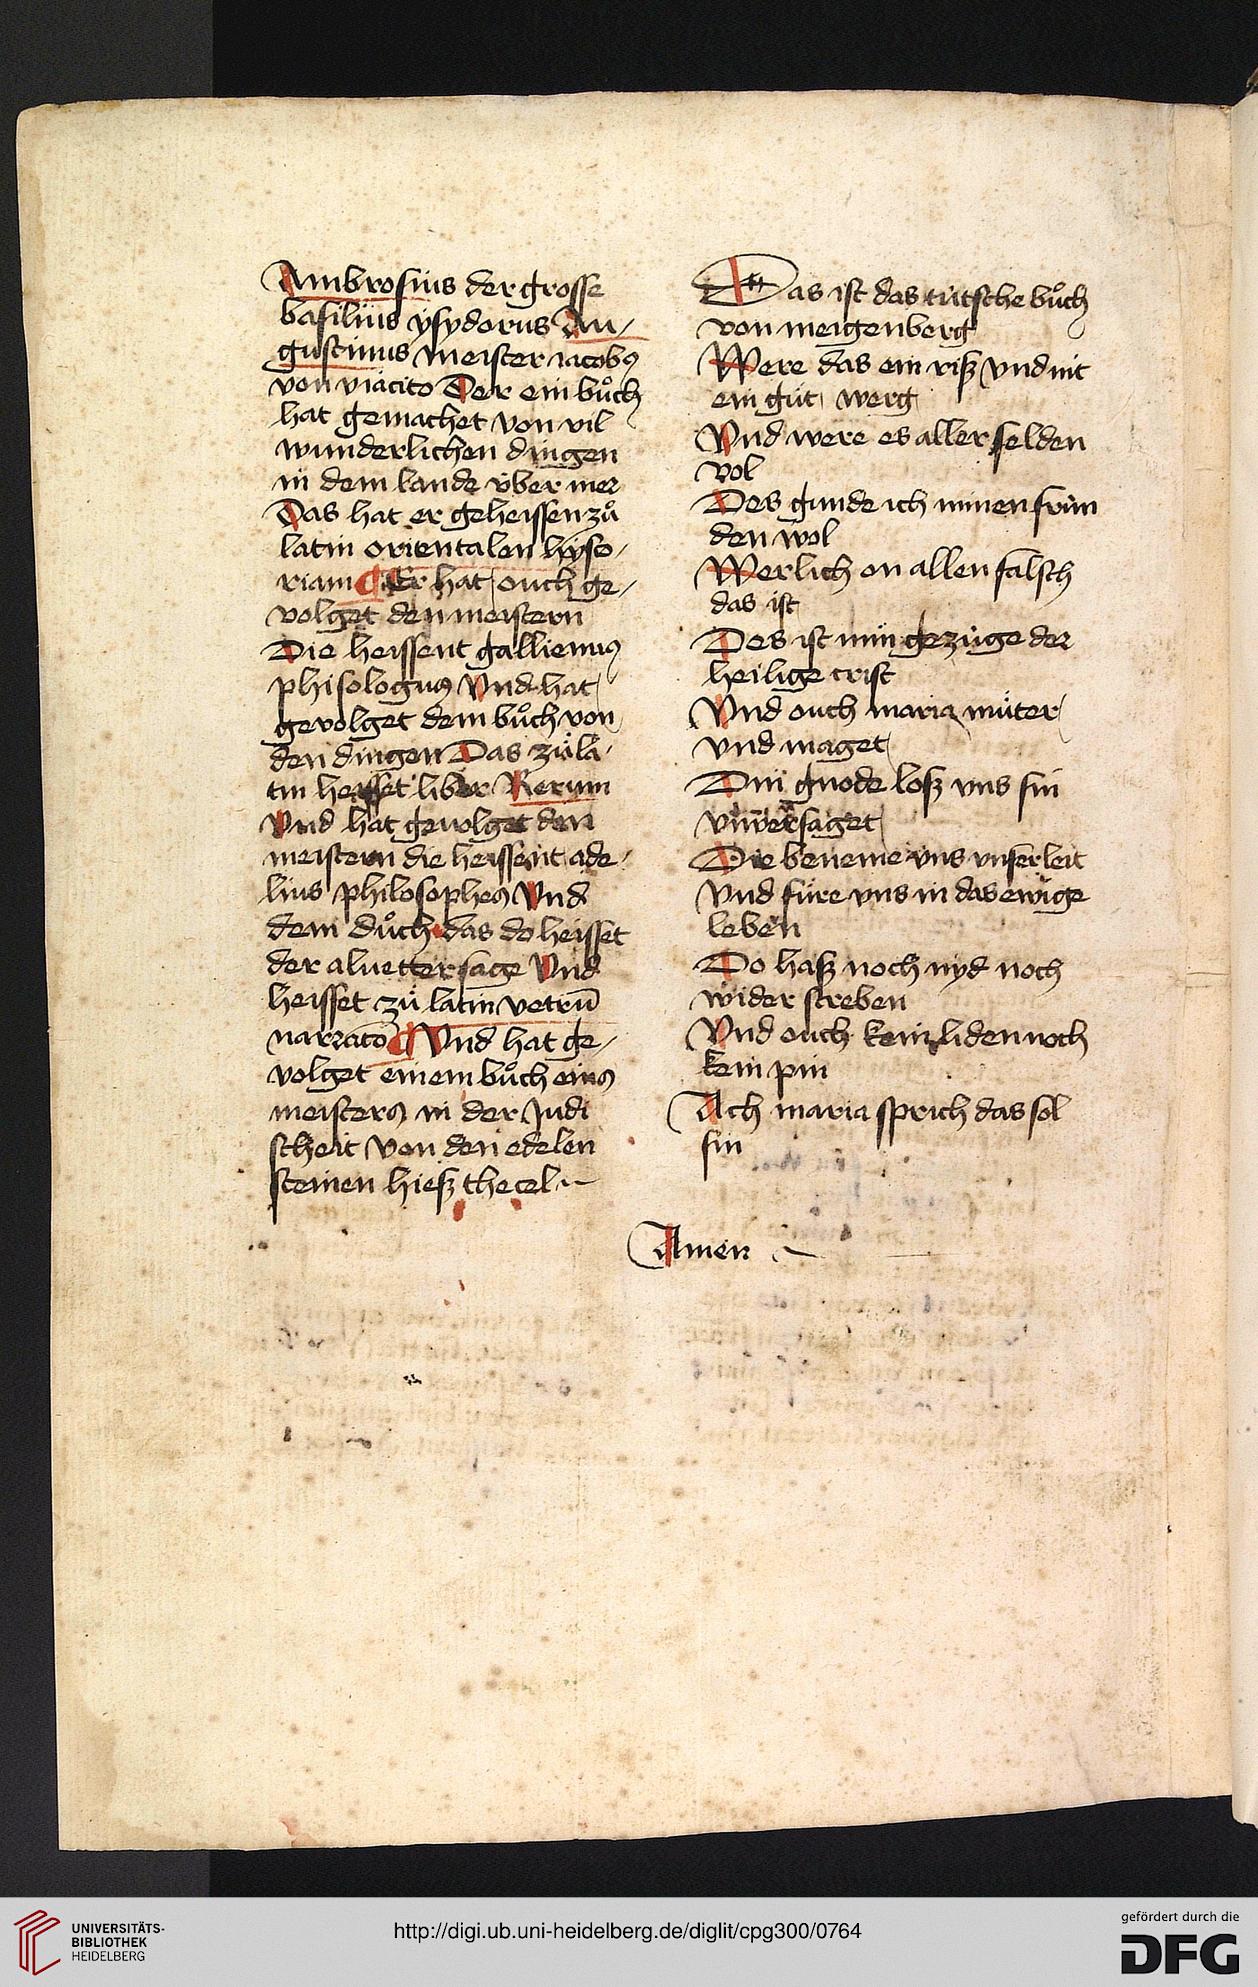 Ambrosius der grosse
basilius ysydorus Au-
gustinus meister iacobus
von viacito Der ein bůch
hat gemachet von vil
wunderlichen dingen
in dem lande über mer
Das hat er geheissen zů
latin orientalen hyso-
riam Er hat ouch ge-
volget den meistern
Die heissent gallienus
phisologus Vnd hat
gevolget dem bůch von
den dingen Das zů la-
tin heisset liber Rerum
Vnd hat gevolget den
meistern die heissent ade-
lius philosophes Vnd
dem důch das do heisset
der alvetter sage Vnd
heisset zů latin vetrū
narrato Vnd hat ge-
volget einem bůch eins
meisters in der Judi
scheit von den edelen
steinen hiesz thecel
Das ist das tütsche bůch
von meigenberg
Were das ein risz vnd nit
ein gůt werg
Vnd were es aller selden
vol
Des gunde ich minen frün
den wol
Werlich on allen falsch
das ist
Des ist min gezüge der
heilige crist
Vnd ouch maria můter
vnd maget
Din gnode losz vns sin
vnversaget
Die beneme vns vnser leit
Vnd füre vns in das ewige
leben
Do hasz noch nyd noch
wider streben
Vnd ouch kein liden noch
kein pin
Ach maria sprich das sol
sin
Amen
UNIVERSITÄTS-
BIBLIOTHEK
HEIDELBERG
http://digi.ub.uni-heidelberg.de/diglit/cpg300/0764
gefördert durch die
DFG